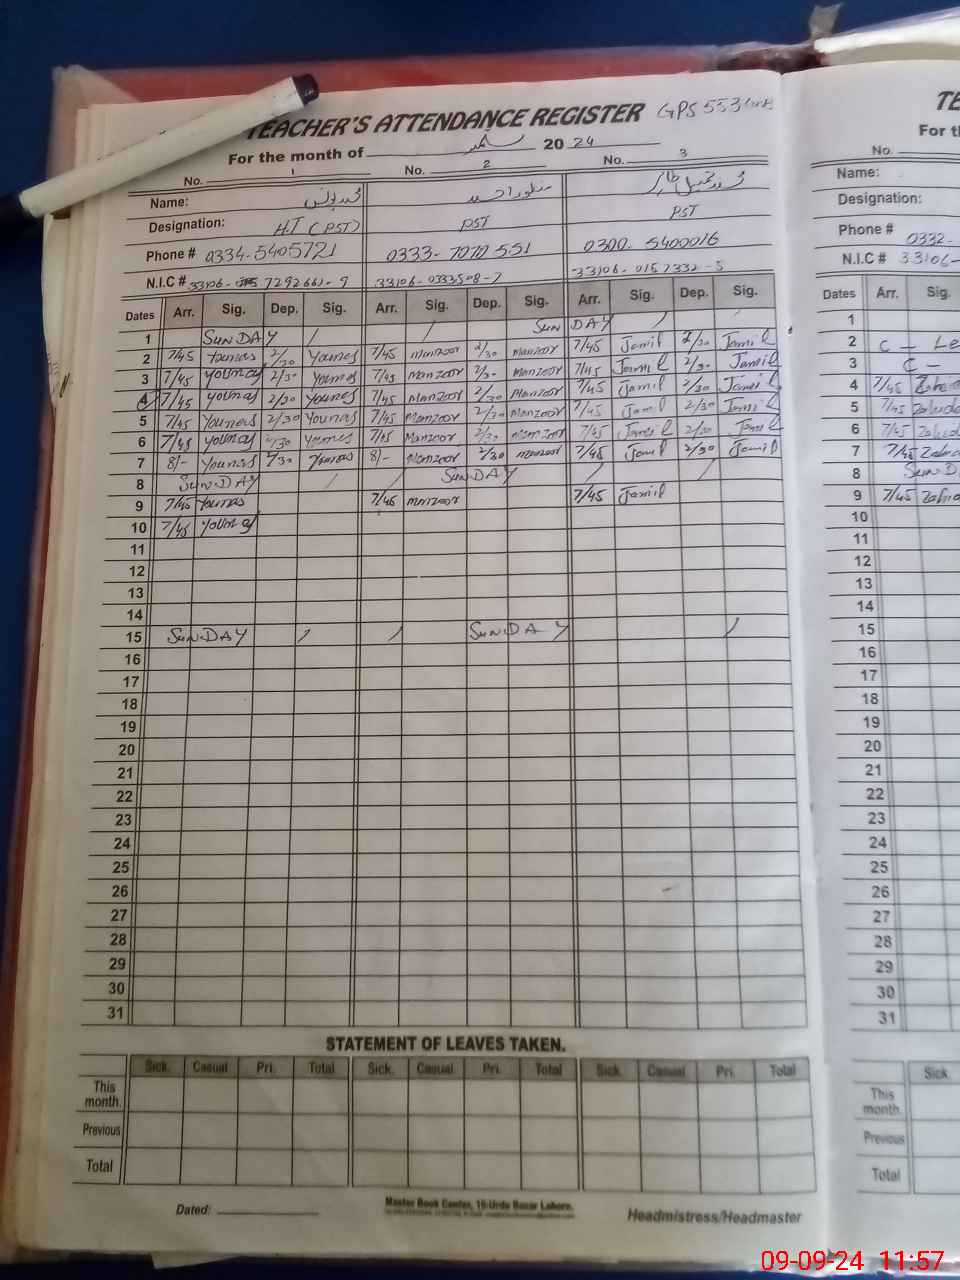 TEACHER'S ATTENDANCE REGISTER GPS 553
For the month of ستمبر 20 24
No. 1 No. 2 No. 3
Name: محمد یونس منظور احمد محمد جمیل طاہر
Designation: H.T (PST) PST PST
Phone # 0334-5405721 0333-7070551 0300-5400016
N.I.C # 33106-7292661-9 33106-0333508-7 33106-0157332-5
Dates Arr. Sig. Dep. Sig. Arr. Sig. Dep. Sig. Arr. Sig. Dep. Sig.
1 SUNDAY / / SUNDAY / /
2 7/45 Younas 2/30 Younas 7/45 Manzoor 2/30 Manzoor 7/45 Jamil 2/30 Jamil
3 7/45 Younas 2/30 Younas 7/45 Manzoor 2/30 Manzoor 7/45 Jamil 2/30 Jamil
4 7/45 Younas 2/30 Younas 7/45 Manzoor 2/30 Manzoor 7/45 Jamil 2/30 Jamil
5 7/45 Younas 2/30 Younas 7/45 Manzoor 2/30 Manzoor 7/45 Jamil 2/30 Jamil
6 7/45 Younas 2/30 Younas 7/45 Manzoor 2/30 Manzoor 7/45 Jamil 2/30 Jamil
7 8/- Younas 2/30 Younas 8/- Manzoor 2/30 Manzoor 7/45 Jamil 2/30 Jamil
8 SUNDAY / / SUNDAY / /
9 7/45 Younas 7/45 Manzoor 7/45 Jamil
10 7/45 Younas
11
12
13
14
15 SUNDAY / / SUNDAY /
16
17
18
19
20
21
22
23
24
25
26
27
28
29
30
31
STATEMENT OF LEAVES TAKEN.
Sick. Casual Pri. Total Sick. Casual Pri. Total Sick. Casual Pri. Total
This month.
Previous
Total
Dated:
Master Book Center, 16-Urdu Bazar Lahore.
Headmistress/Headmaster
TE
For th
No.
Name:
Designation:
Phone # 0332-
N.I.C # 33106-
Dates Arr. Sig.
1
2 C - Le
3 C -
4 7/45 Zahida
5 7/45 Zahida
6 7/45 Zahida
7 7/45 Zahida
8 SUND
9 7/45 Zahida
10
11
12
13
14
15
16
17
18
19
20
21
22
23
24
25
26
27
28
29
30
31
Sick.
This month.
Previous
Total
09-09-24 11:57